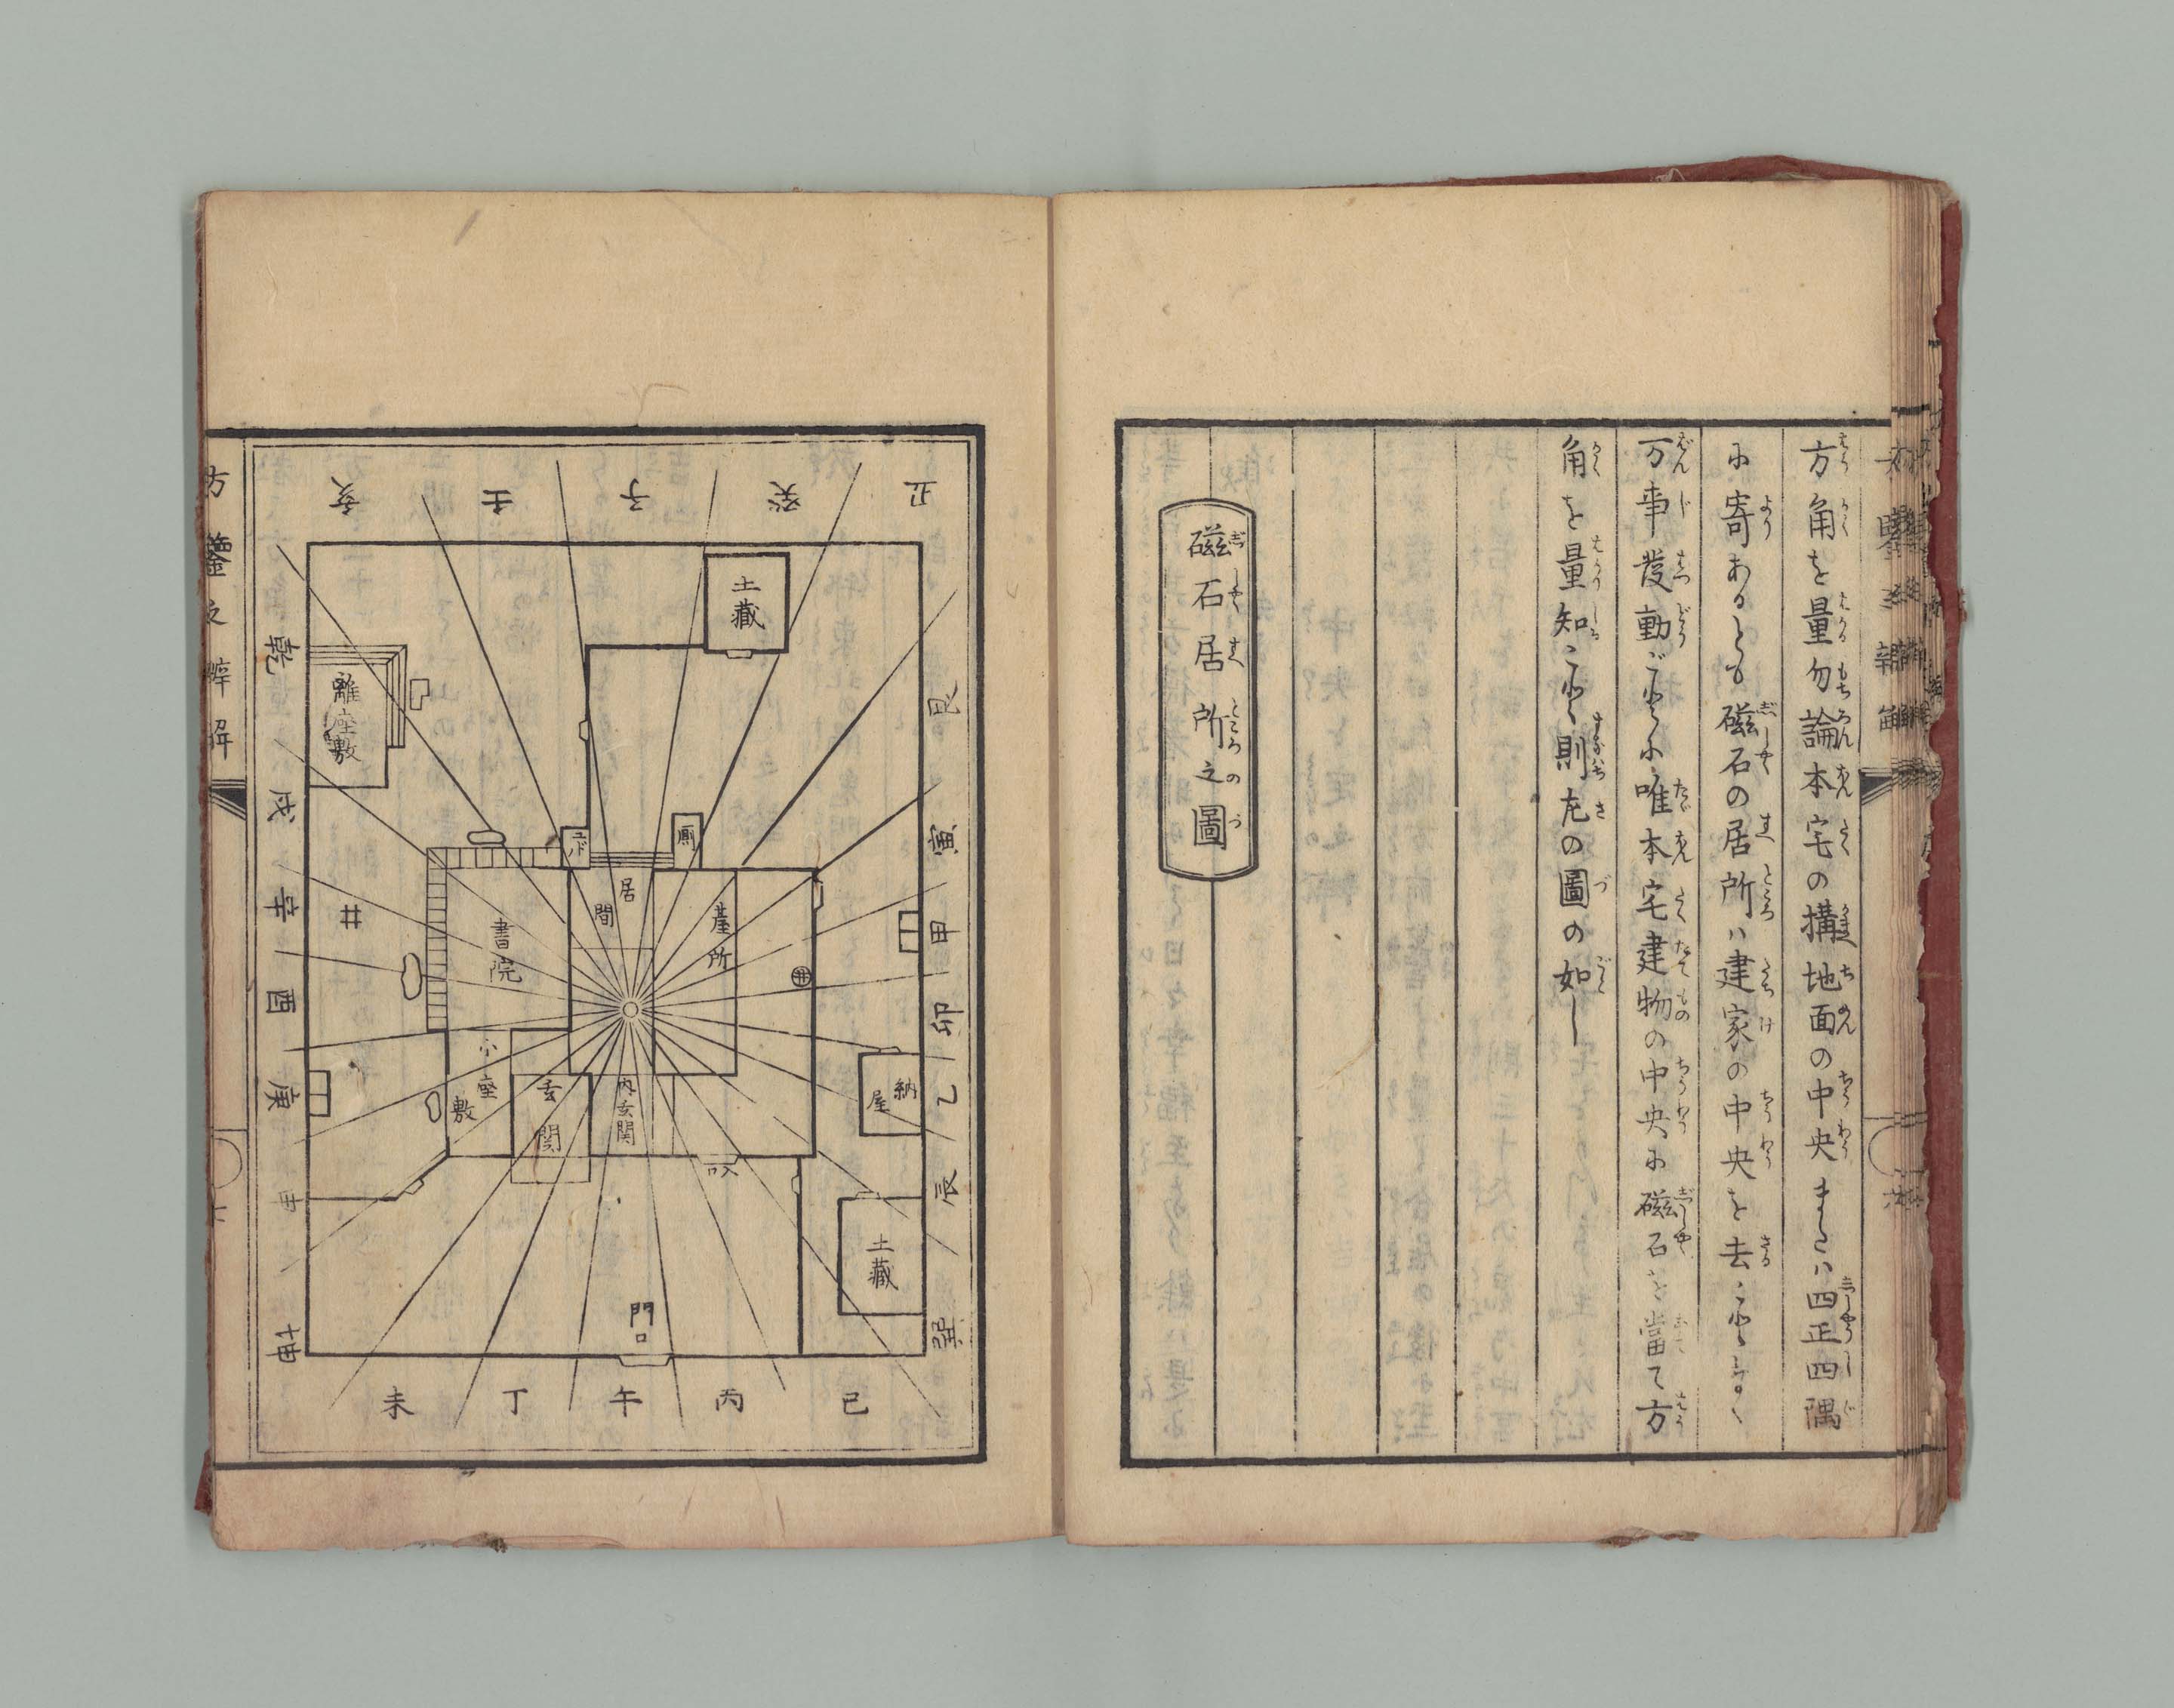 方角を量勿論本宅の構地面の中央または四正四隅
に寄あるとも磁石の居所ハ建家の中央を去ことなく
万事発動ごとに唯本宅建物の中央に磁石を當て方
角を量知こと則左の圖の如し
磁石居所之圖
丑
癸
子
壬
亥
艮
寅
甲
卯
乙
辰
巽
巳
丙
午
丁
未
坤
申
庚
酉
辛
戌
乾
土藏
離座敷
厠
居間
臺所
書院
井
井
小座敷
玄関
内玄関
納屋
土藏
門口
方鑒之辨解